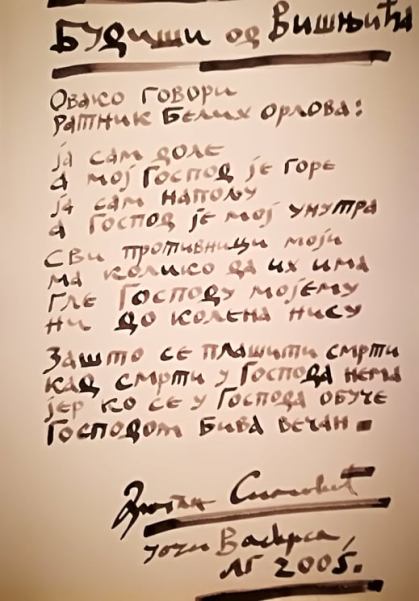 Будиши од Вишњића
Овако говори
ратник Белих орлова:
ја сам доле
а мој Господ је горе
ја сам напољу
а Господ је мој унутра
Сви противници моји
ма колико да их има
гле Господу мојему
ни до колена нису
Зашто се плашити смрти
кад смрти у Господа нема
јер ко се у Господа обуче
Господом бива вечан
уочи Васкрса,
ЛГ 2005.